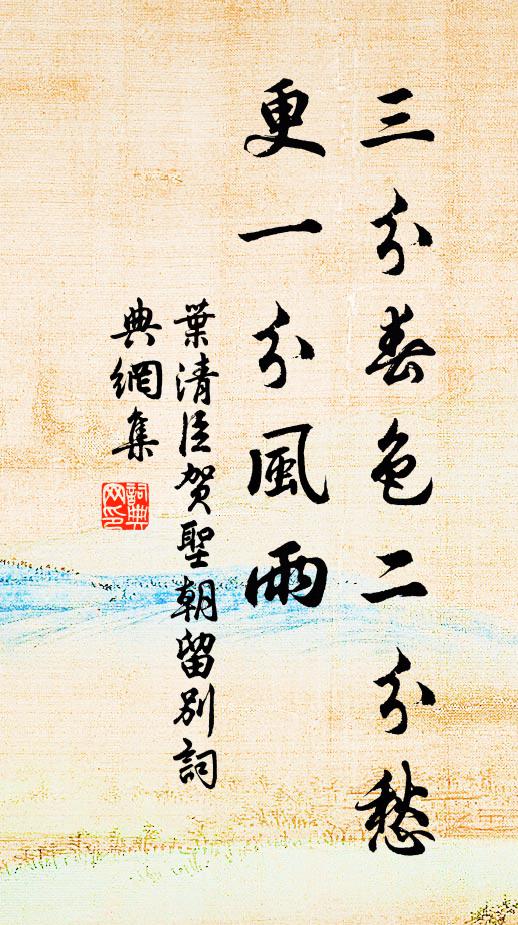 三分春色二分愁
更一分風雨
葉清臣賀聖朝留別詞
典網集
詞典
网印